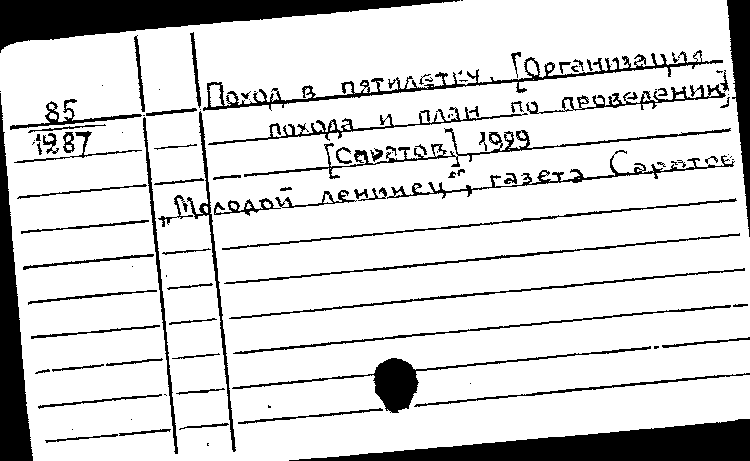 85
1287
Поход в пятилетку. [Организация
похода и план по проведению]
[Саратов], 1929
„Молодой ленинец“, газета Саратов